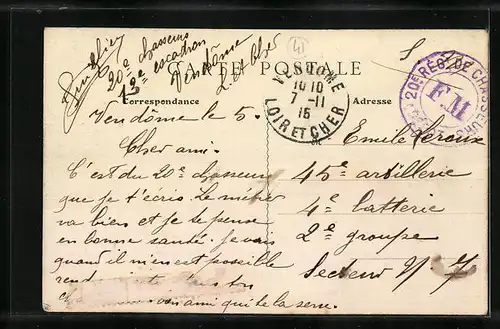 20e chasseurs
13e escadron
Vendôme
L. et Cher
CARTE POSTALE
Correspondance
Adresse
VENDOME
10 10
7-11
15
LOIR ET CHER
20e REG. DE CHASSEURS
FM
Vendôme le 5.
Cher ami.
C'est du 20e chasseurs
que je t'écris. Le métier
va bien et je te pense
en bonne santé. je vais
quand il m'en est possible
rendre
ami qui te la serre.
Emile Leroux
45e artillerie
4e batterie
2e groupe
Secteur No 7